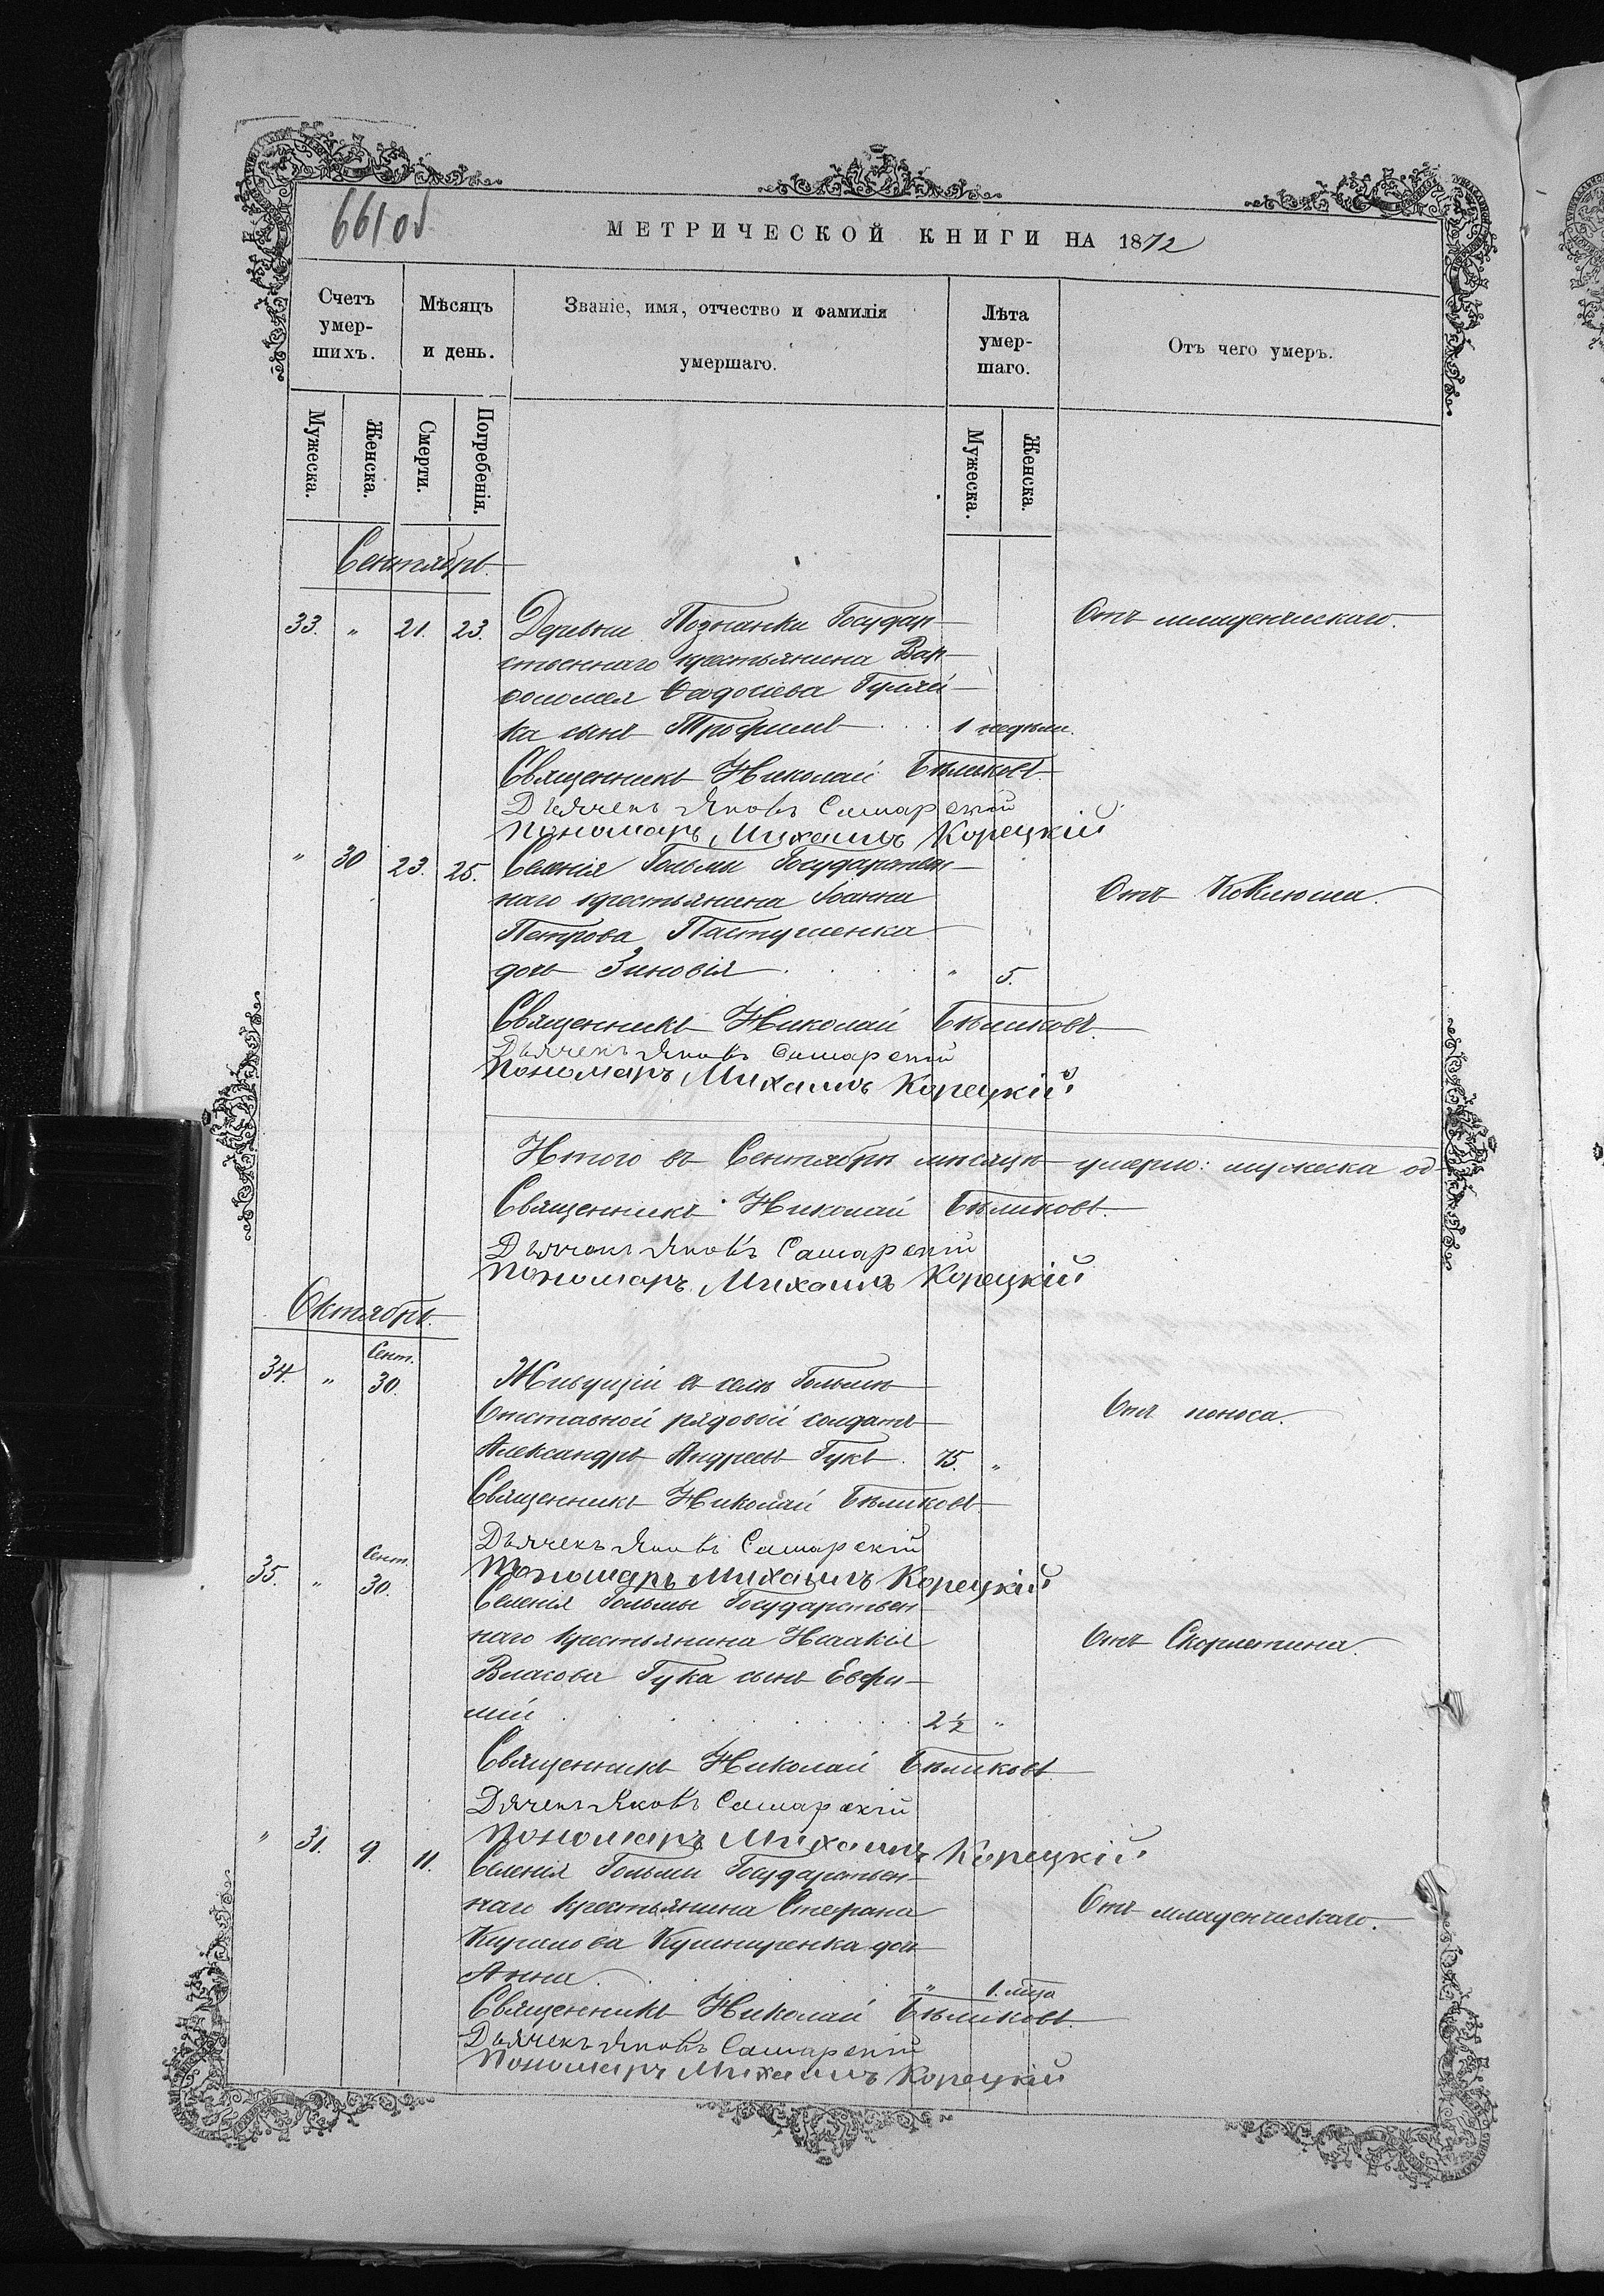 661об
МЕТРИЧЕСКОЙ КНИГИ НА 1872
Счетъ умер-шихъ.
Мѣсяцъ и день.
Званіе, имя, отчество и фамилія умершаго.
Лѣта умер-шаго.
Отъ чего умеръ.
Мужеска.
Женска.
Смерти.
Погребенія.
Мужеска.
Женска.
Сентябрь
33. " 21. 23. Деревни Познанки Государ- Отъ младенческаго.
ственнаго крестьянина Вар-
ѳоломея Ѳеодосіева Гуляй-
ка сынъ Трофимъ 1 недѣли.
Священникъ Николай Бѣликовъ
Дьячекъ Яковъ Самарскій
Пономарь Михаилъ Корецкій
" 30 23. 25. Селенія Гольмы Государствен-
наго крестьянина Іоанна Отъ Коклюша.
Петрова Пастушенка
дочь Зиновія " 5.
Священникъ Николай Бѣликовъ
Дьячекъ Яковъ Самарскій
Пономарь Михаилъ Корецкій
Итого въ Сентябрѣ мѣсяцѣ умерло: мужеска од-
Священникъ Николай Бѣликовъ.
Дьячекъ Яковъ Самарскій
Пономарь Михаилъ Корецкій
Октябрь.
Сент.
34. " 30. Живущій въ селѣ Гольмѣ
Отставной рядовой солдатъ Отъ поноса.
Александръ Андреевъ Гукъ 75. "
Священникъ Николай Бѣликовъ
Дьячекъ Яковъ Самарскій
Сент.
35. " 30. Пономарь Михаилъ Корецкій
Селенія Гольмы Государствен-
наго крестьянина Исаакія Отъ Скорлатина.
Власова Гука сынъ Евфи-
мій 2½ "
Священникъ Николай Бѣликовъ
Дячекъ Яковъ Самарскій
Пономарь Михаилъ Корецкій
" 31. 9. 11. Селенія Гольмы Государствен-
наго крестьянина Стефана Отъ младенческаго.
Кирилова Кушниренка дочь
Анна " 1. мца
Священникъ Николай Бѣликовъ.
Дьячекъ Яковъ Самарскій
Пономарь Михаилъ Корецкій